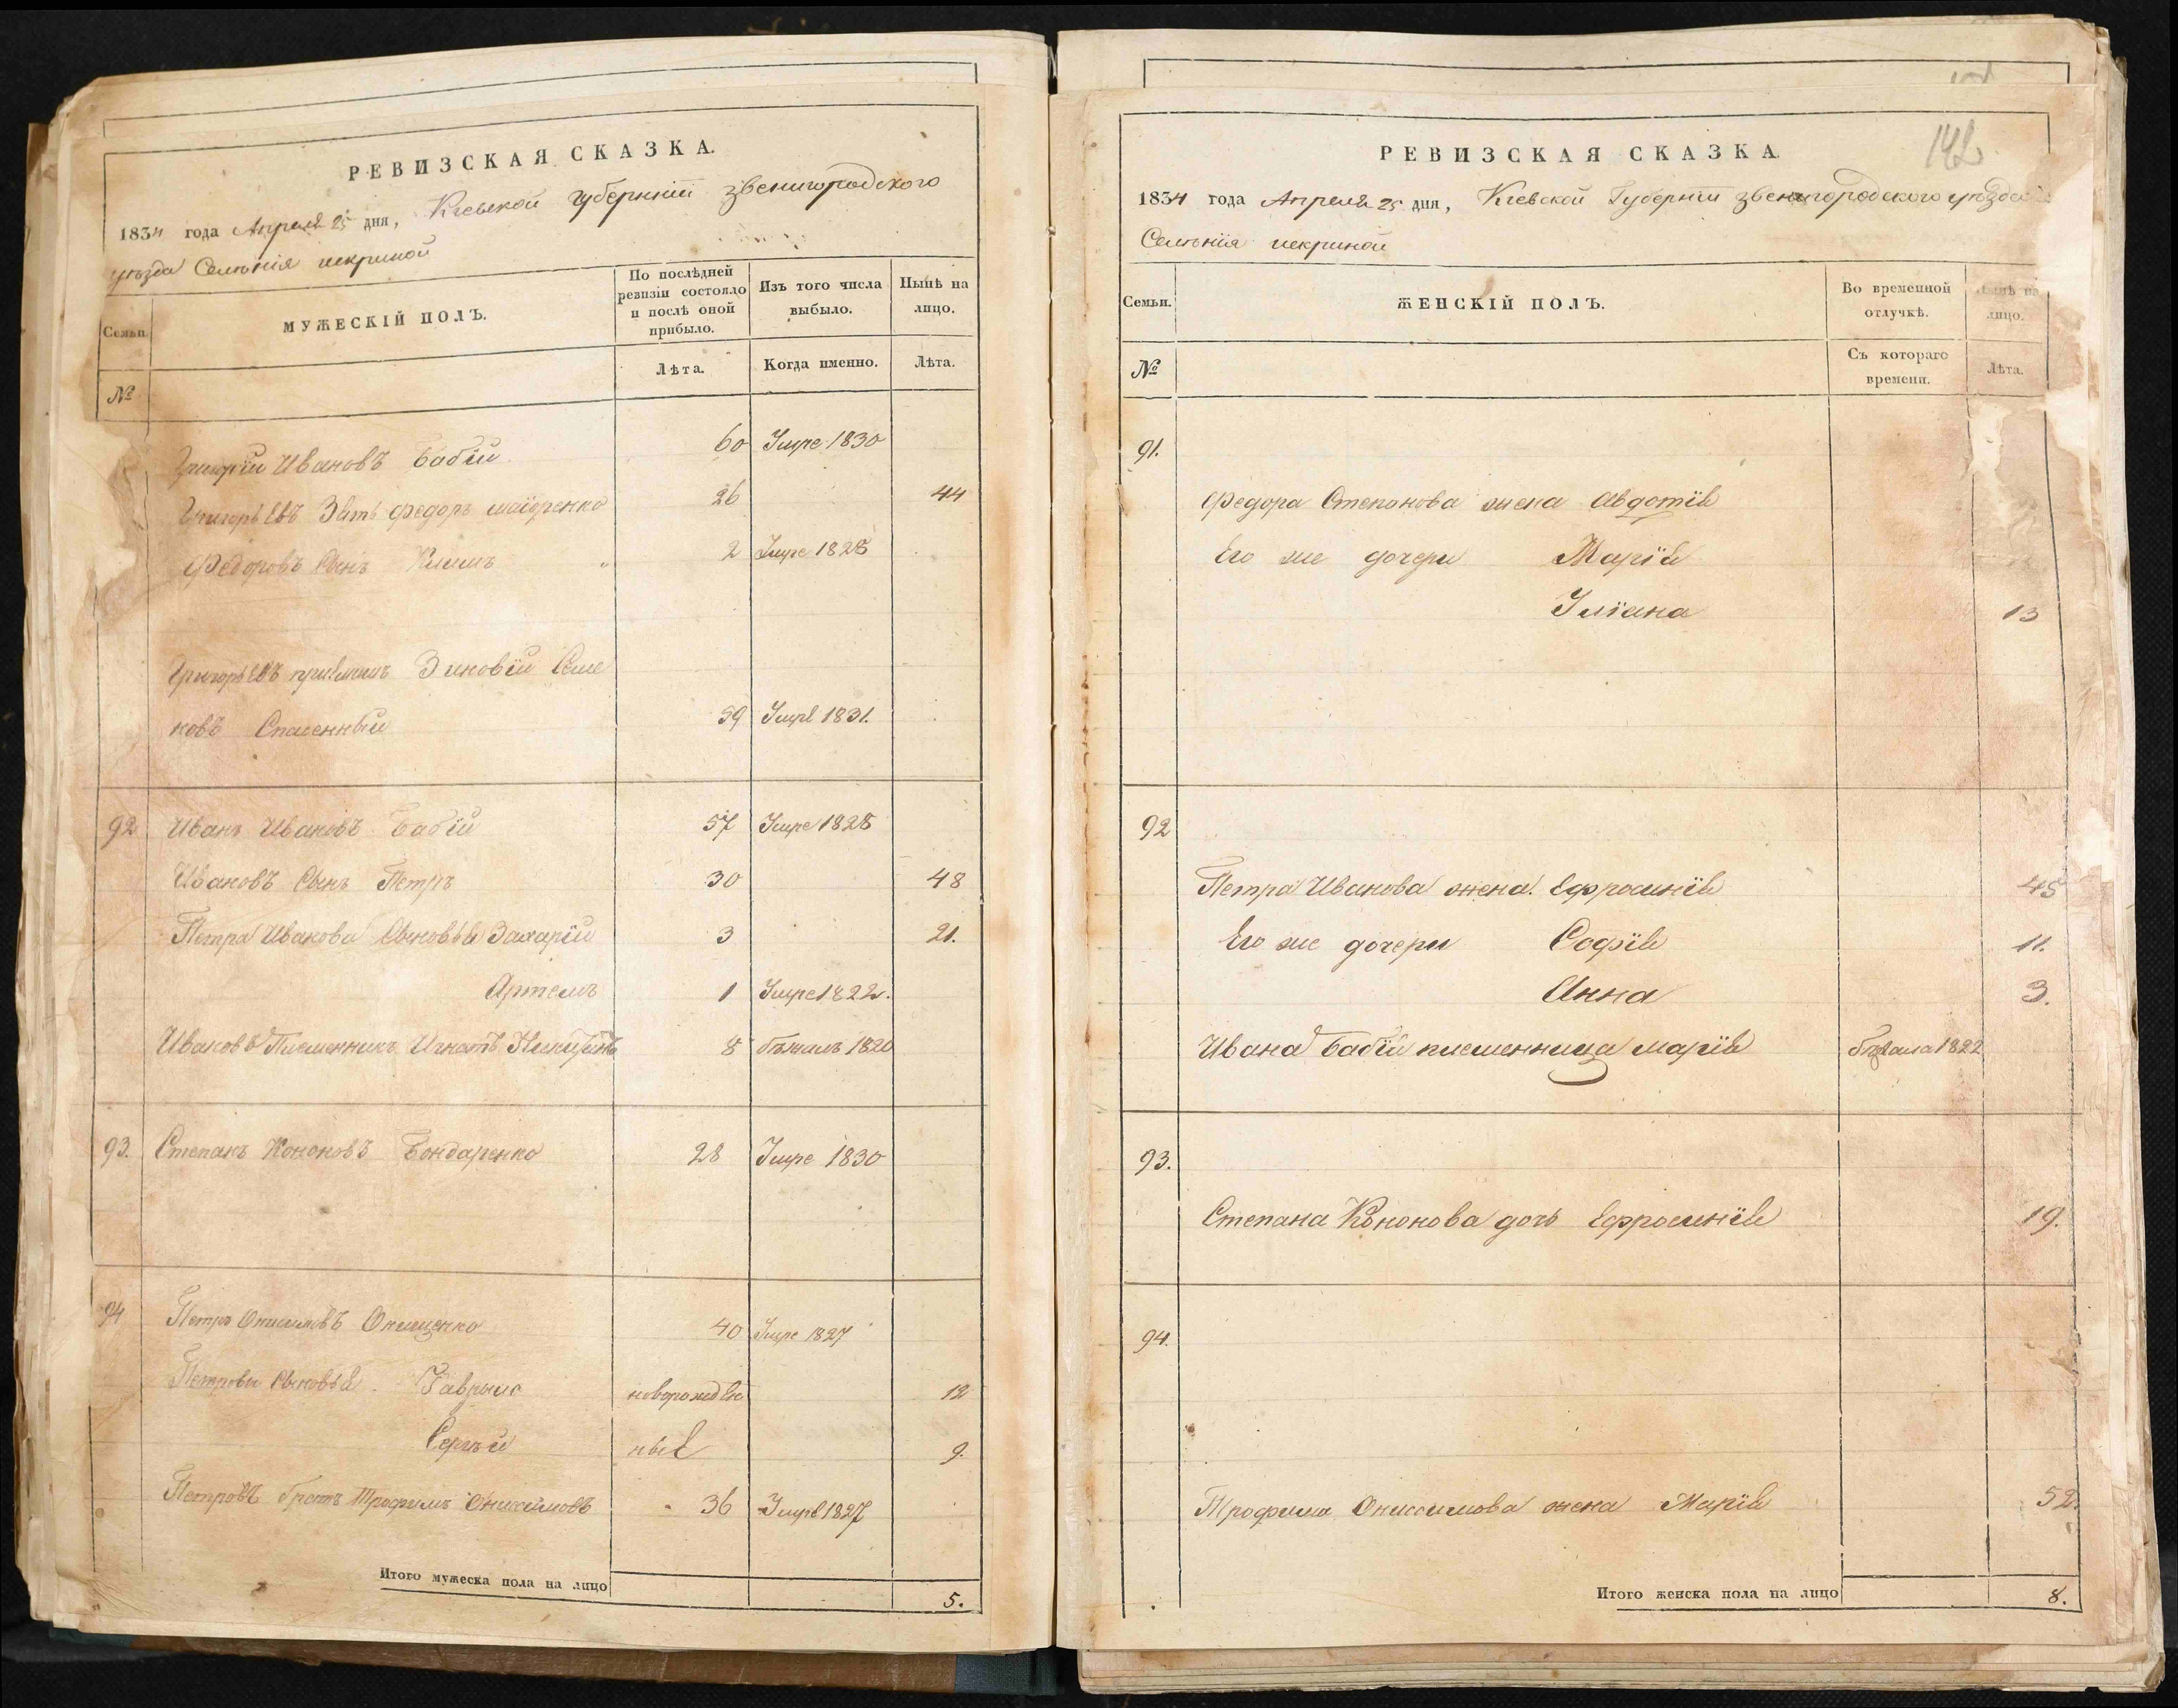 РЕВИЗСКАЯ СКАЗКА.
1834 года Апреля 25 дня, Кіевской губерніи звенигородского
уѣзда Селѣнія искриной
Семьи.
МУЖЕСКІЙ ПОЛЪ.
По послѣдней ревизіи состояло и послѣ оной прибыло.
Изъ того числа выбыло.
Нынѣ на лицо.
№
Лѣта.
Когда именно.
Лѣта.
Григорій Ивановъ Бабій 60 Умре 1830
Григорьевъ Зять федоръ маіоренко 26 44
Федоровъ Сынъ Климъ " 2 Умре 1828
Григорьевъ приемышъ Зиновій Семе
новъ Спасенный 59 Умре 1831.
92 Иванъ Ивановъ Бабій 57 Умре 1828
Ивановъ Сынъ Петръ 30 48
Петра Иванова Сыновья Захарій 3 21.
Артемъ 1 Умре 1822.
Ивановъ Племенникъ Игнатъ 8 бѣжалъ 1820
93. Степанъ Кононовъ Бондаренко 28 Умре 1830
94 Петръ Онисимовъ Онищенко 40 Умре 1827
Петровы Сыновья Гаврыло новорожден 12
Сергѣй ные 9.
Петровъ братъ Трофимъ Онисимовъ 36 Умре 1827
Итого мужеска пола на лицо 5.
142
РЕВИЗСКАЯ СКАЗКА.
1834 года Апреля 25 дня, Кіевской Губерніи звенигородского уѣзда
Селѣнія искриной
Семьи.
ЖЕНСКІЙ ПОЛЪ.
Во временной отлучкѣ.
Нынѣ на лицо.
№
Съ котораго времени.
Лѣта.
91.
Федора Степанова жена Авдотія
Его же дочери Марія
Уліана 13
92
Петра Иванова жена Ефросинія 45
Его же дочери Софія 11.
Анна 3.
Ивана Бабій племенница Марія бѣжала 1822
93.
Степана Кононова дочь Ефросинія 19.
94.
Трофима Онисимова жена Марія 52.
Итого женска пола на лицо 8.